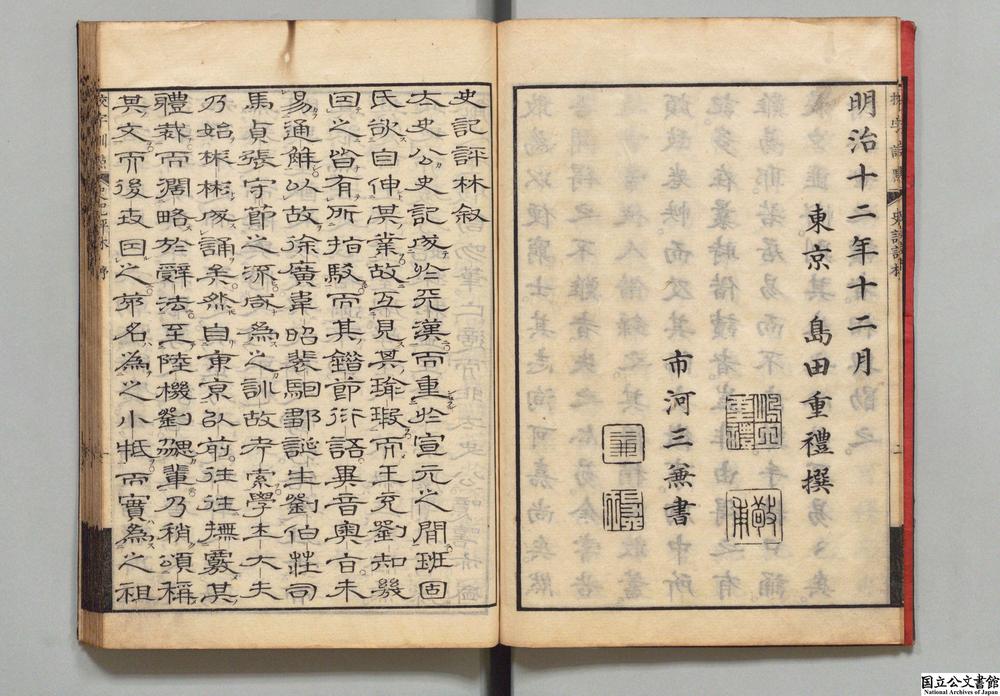 明治十二年十二月
東京 島田重禮撰
市河三兼書
史記評林敘
太史公史記成於炎漢而重於宣元之間班固
氏欲自伸其業故互見其瑜瑕而王充劉知幾
回之皆有所指駁而其鍇節衍語異音奧旨未
易通解以故徐廣韋昭裴駰鄒誕生劉伯莊司
馬貞張守節之流咸為之訓故考索學士大夫
乃始彬彬成誦矣然自東京以前往往撫覈其
體裁而濶略於辭法至陸機劉勰輩乃稍頌稱
其文而後
之
名為之小牴而實為之祖
国立公文書館
National Archives of Japan